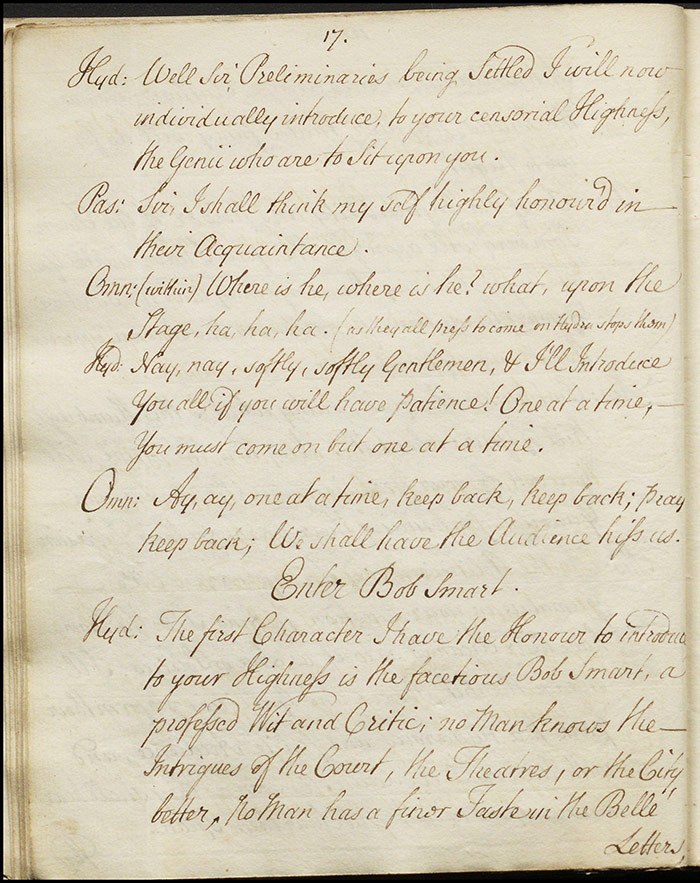 17.
Hyd: Well Sir, Preliminaries being Settled I will now
individually introduce, to your censorial Highness,
the Genii who are to Sit upon you.
Pas: Sir, I shall think my self highly honour'd in
their Acquaintance.
Omn: (within) Where is he, where is he? what, upon the
Stage, ha, ha, ha. (as they all press to come on Hydra stops them)
Hyd: Nay, nay, softly, softly Gentlemen, & I'll Introduce
You all, if you will have patience! One at a time,
You must come on but one at a time.
Omn: Ay, ay, one at a time, keep back, keep back; pray
keep back; We shall have the Audience hiss us.
Enter Bob Smart.
Hyd: The first Character I have the Honour to introduce
to your Highness is the facetious Bob Smart, a
professed Wit and Critic; no Man knows the
Intrigues of the Court, the Theatres, or the City
better, No Man has a finer Taste in the Belle
Letters,